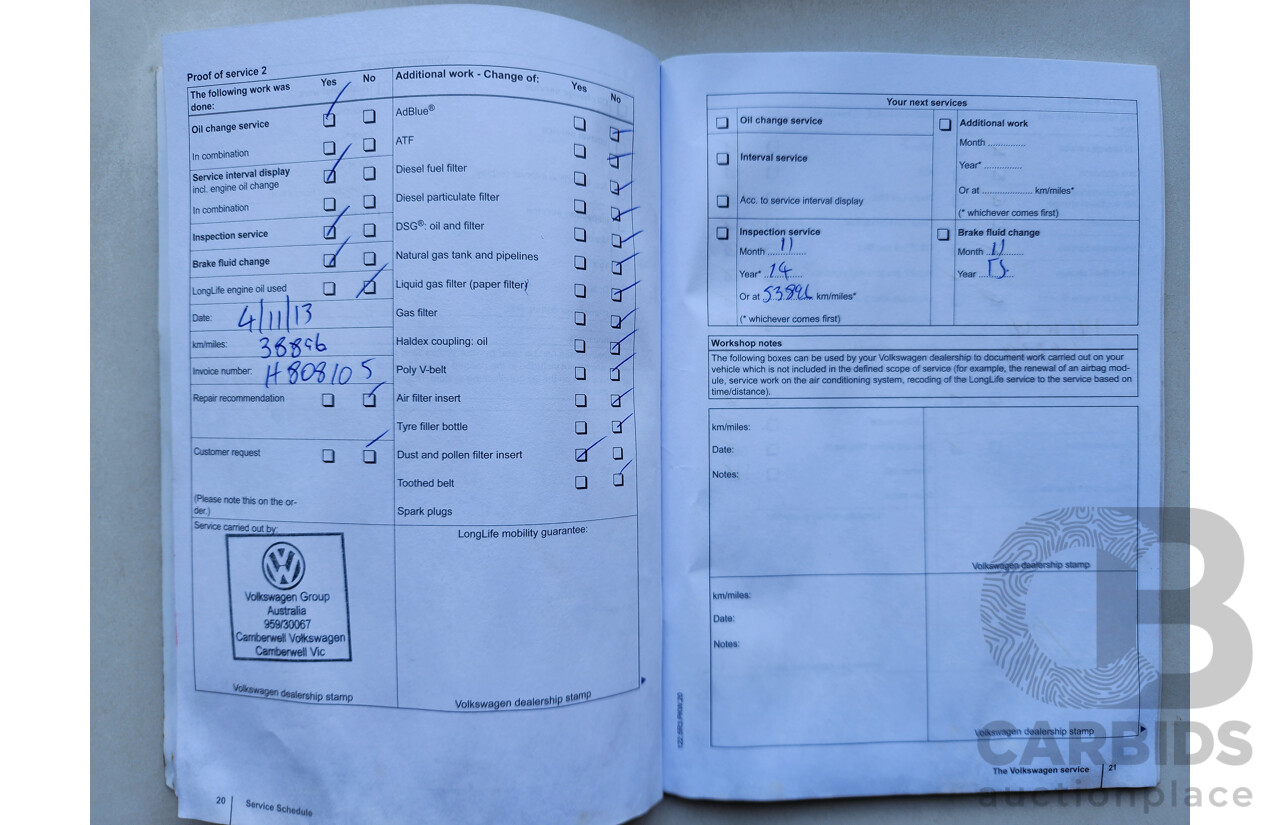 Proof of service 2
The following work was done:
Yes
No
Oil change service
In combination
Service interval display
incl. engine oil change
In combination
Inspection service
Brake fluid change
LongLife engine oil used
Date: 4/11/13
km/miles: 38896
Invoice number: H808105
Repair recommendation
Customer request
(Please note this on the or-
der.)
Service carried out by:
Volkswagen Group
Australia
959/30067
Camberwell Volkswagen
Camberwell Vic
Volkswagen dealership stamp
Additional work - Change of:
Yes
No
AdBlue®
ATF
Diesel fuel filter
Diesel particulate filter
DSG®: oil and filter
Natural gas tank and pipelines
Liquid gas filter (paper filter)
Gas filter
Haldex coupling: oil
Poly V-belt
Air filter insert
Tyre filler bottle
Dust and pollen filter insert
Toothed belt
Spark plugs
LongLife mobility guarantee:
Volkswagen dealership stamp
20 Service Schedule
Your next services
Oil change service
Interval service
Acc. to service interval display
Additional work
Month
Year*
Or at km/miles*
(* whichever comes first)
Inspection service
Month 11
Year* 14
Or at 53896 km/miles*
(* whichever comes first)
Brake fluid change
Month 11
Year 15
Workshop notes
The following boxes can be used by your Volkswagen dealership to document work carried out on your
vehicle which is not included in the defined scope of service (for example, the renewal of an airbag mod-
ule, service work on the air conditioning system, recoding of the LongLife service to the service based on
time/distance).
km/miles:
Date:
Notes:
Volkswagen dealership stamp
km/miles:
Date:
Notes:
Volkswagen dealership stamp
The Volkswagen service 21
CARBIDS
auctionplace